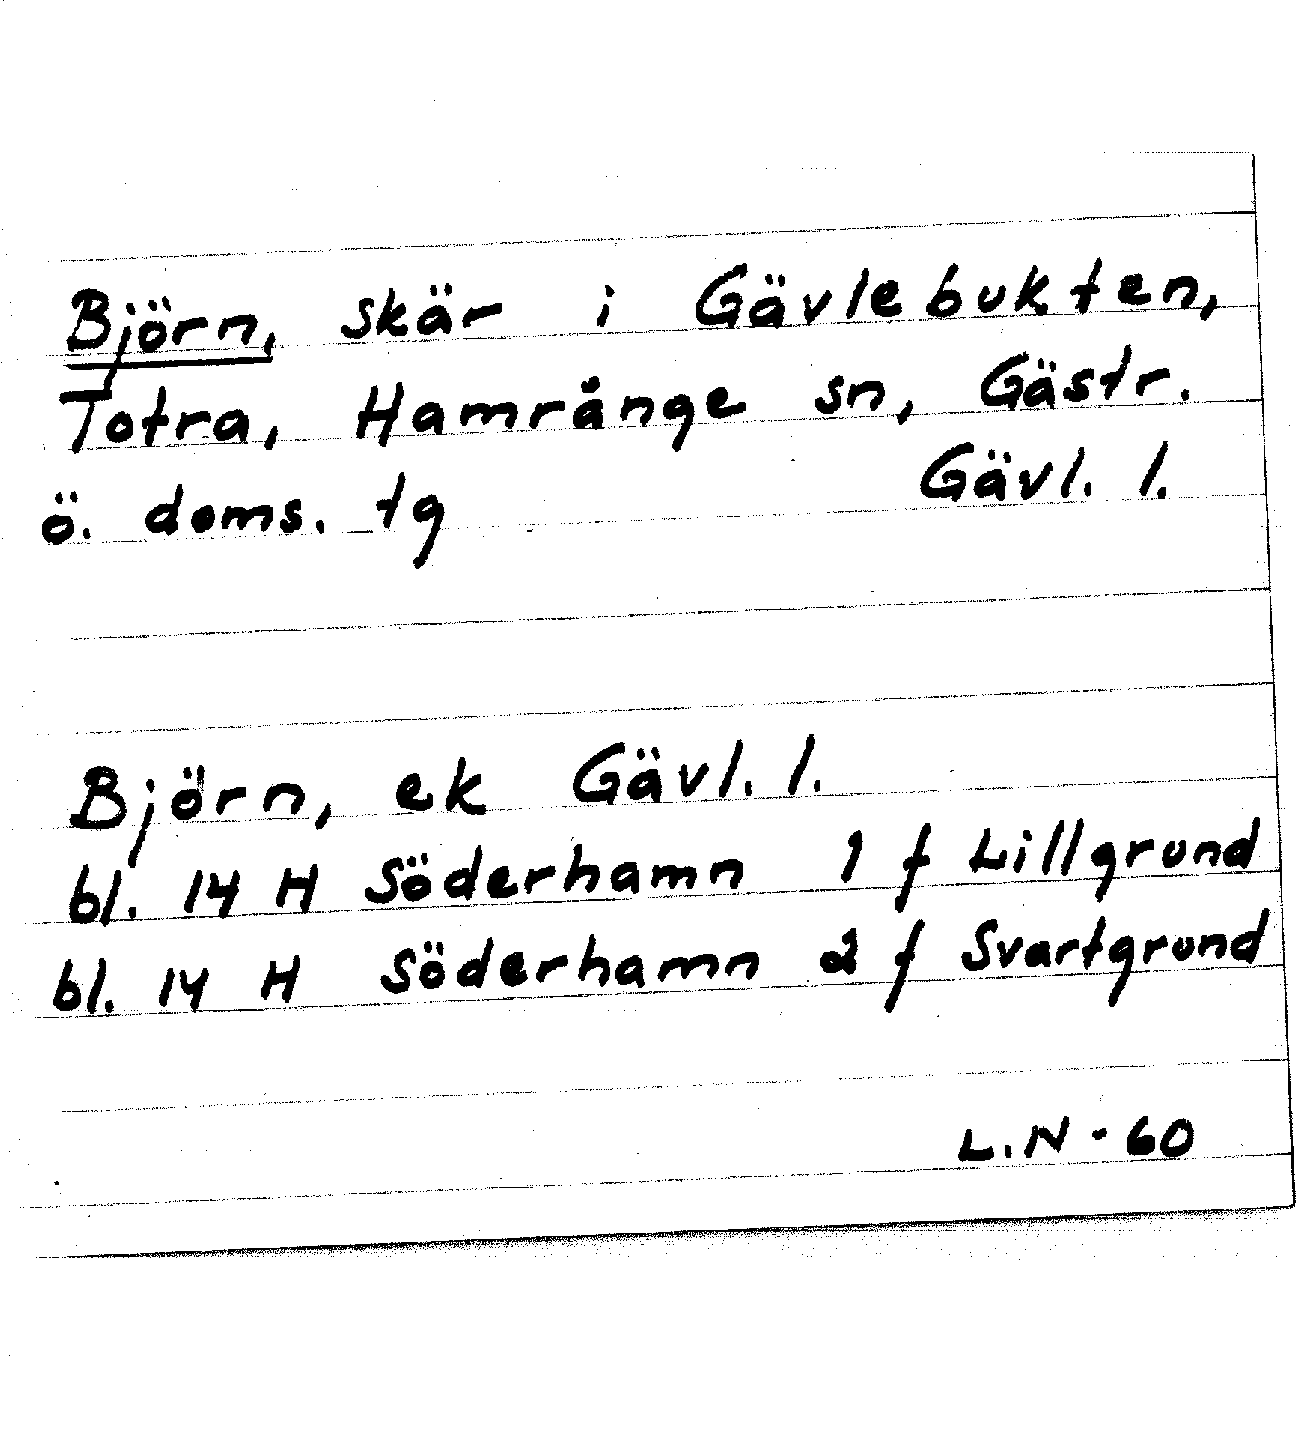 Björn, skär i Gävlebukten,
Totra, Hamrånge sn, Gästr.
ö. doms. tg Gävl. l.
Björn, ek Gävl. l.
bl. 14 H Söderhamn 1 f Lillgrund
bl. 14 H Söderhamn 2 f Svartgrund
L.N - 60